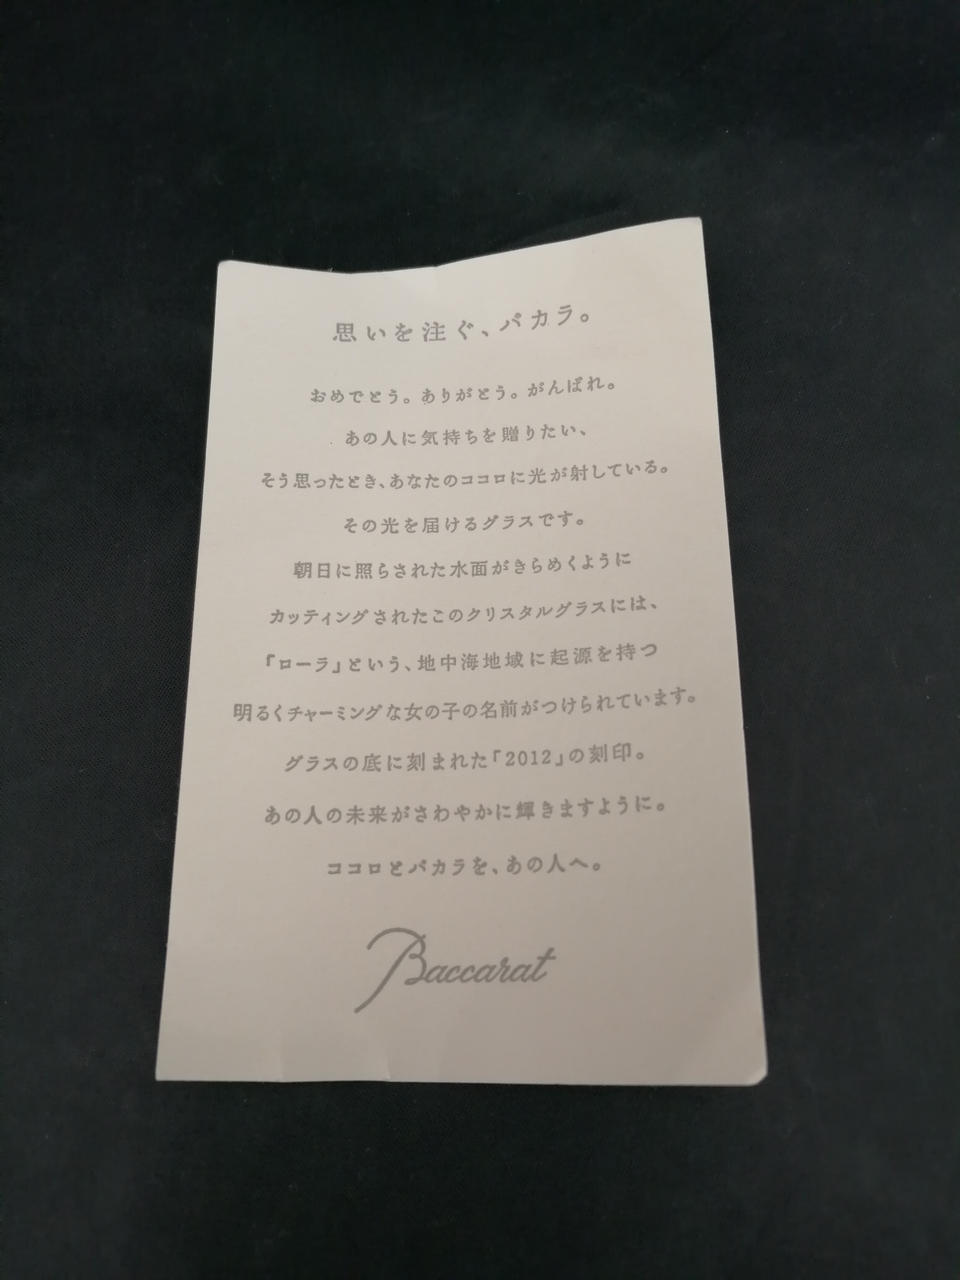 思いを注ぐ、バカラ。
おめでとう。ありがとう。がんばれ。
あの人に気持ちを贈りたい、
そう思ったとき、あなたのココロに光が射している。
その光を届けるグラスです。
朝日に照らされた水面がきらめくように
カッティングされたこのクリスタルグラスには、
『ローラ』という、地中海地域に起源を持つ
明るくチャーミングな女の子の名前がつけられています。
グラスの底に刻まれた「2012」の刻印。
あの人の未来がさわやかに輝きますように。
ココロとバカラを、あの人へ。
Baccarat